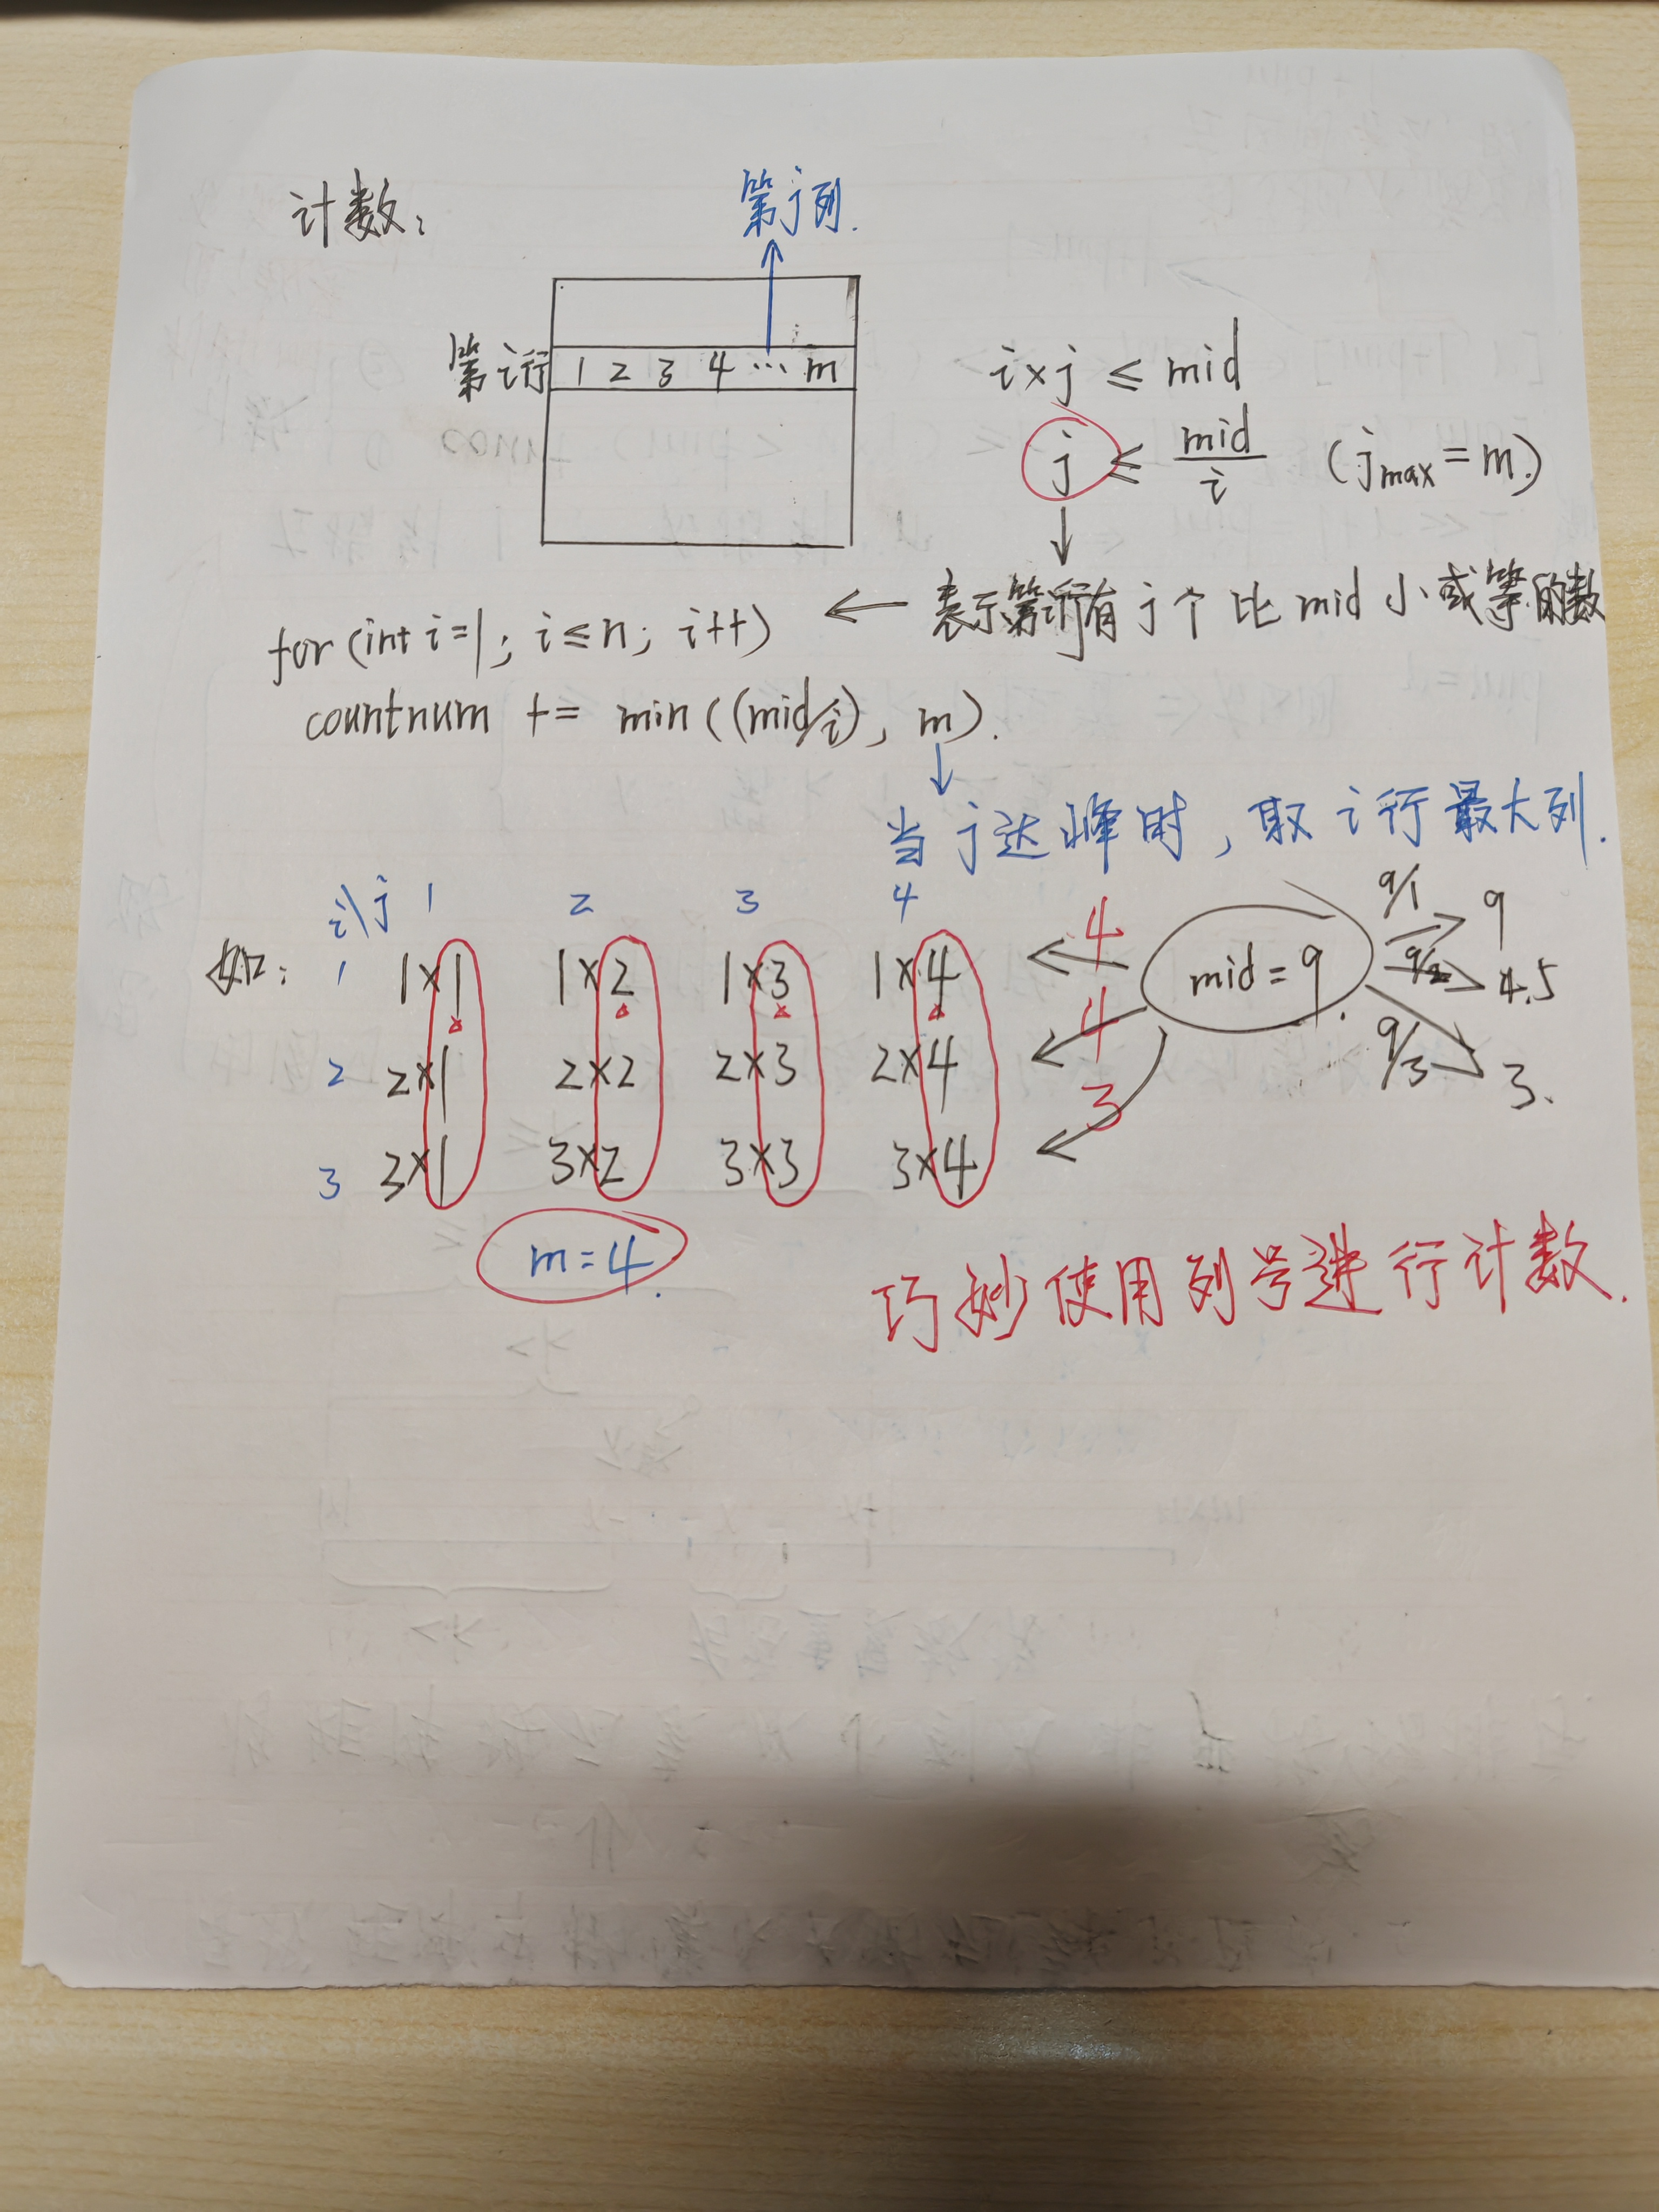 计数:
第j列.
第i行 1 2 3 4 … m
i×j ≤ mid
j ≤ mid/i (jmax = m.)
表示第i行有j个比mid小或等的数
for (int i=1; i≤n; i++)
countnum += min((mid/i), m).
当j达峰时,取i行最大列.
i\j 1 2 3 4
如: 1 1×1 1×2 1×3 1×4 4
2 2×1 2×2 2×3 2×4 4
3 3×1 3×2 3×3 3×4 3
mid = 9.
9/1 9
9/2 4.5
9/3 3.
m=4.
巧妙使用列号进行计数.